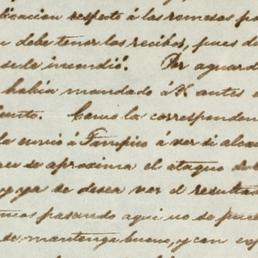 licacion respecto á las remesas po
n debe tener los recibos, pues d
se le incendió. Por aguard
habia mandado á K antes d
ento. Como la corresponden
la envió á Tampico á ver si alca
se aproxima el ataque de
es de desear ver el resulta
pasando aqui no se pue
se mantenga bueno, y con